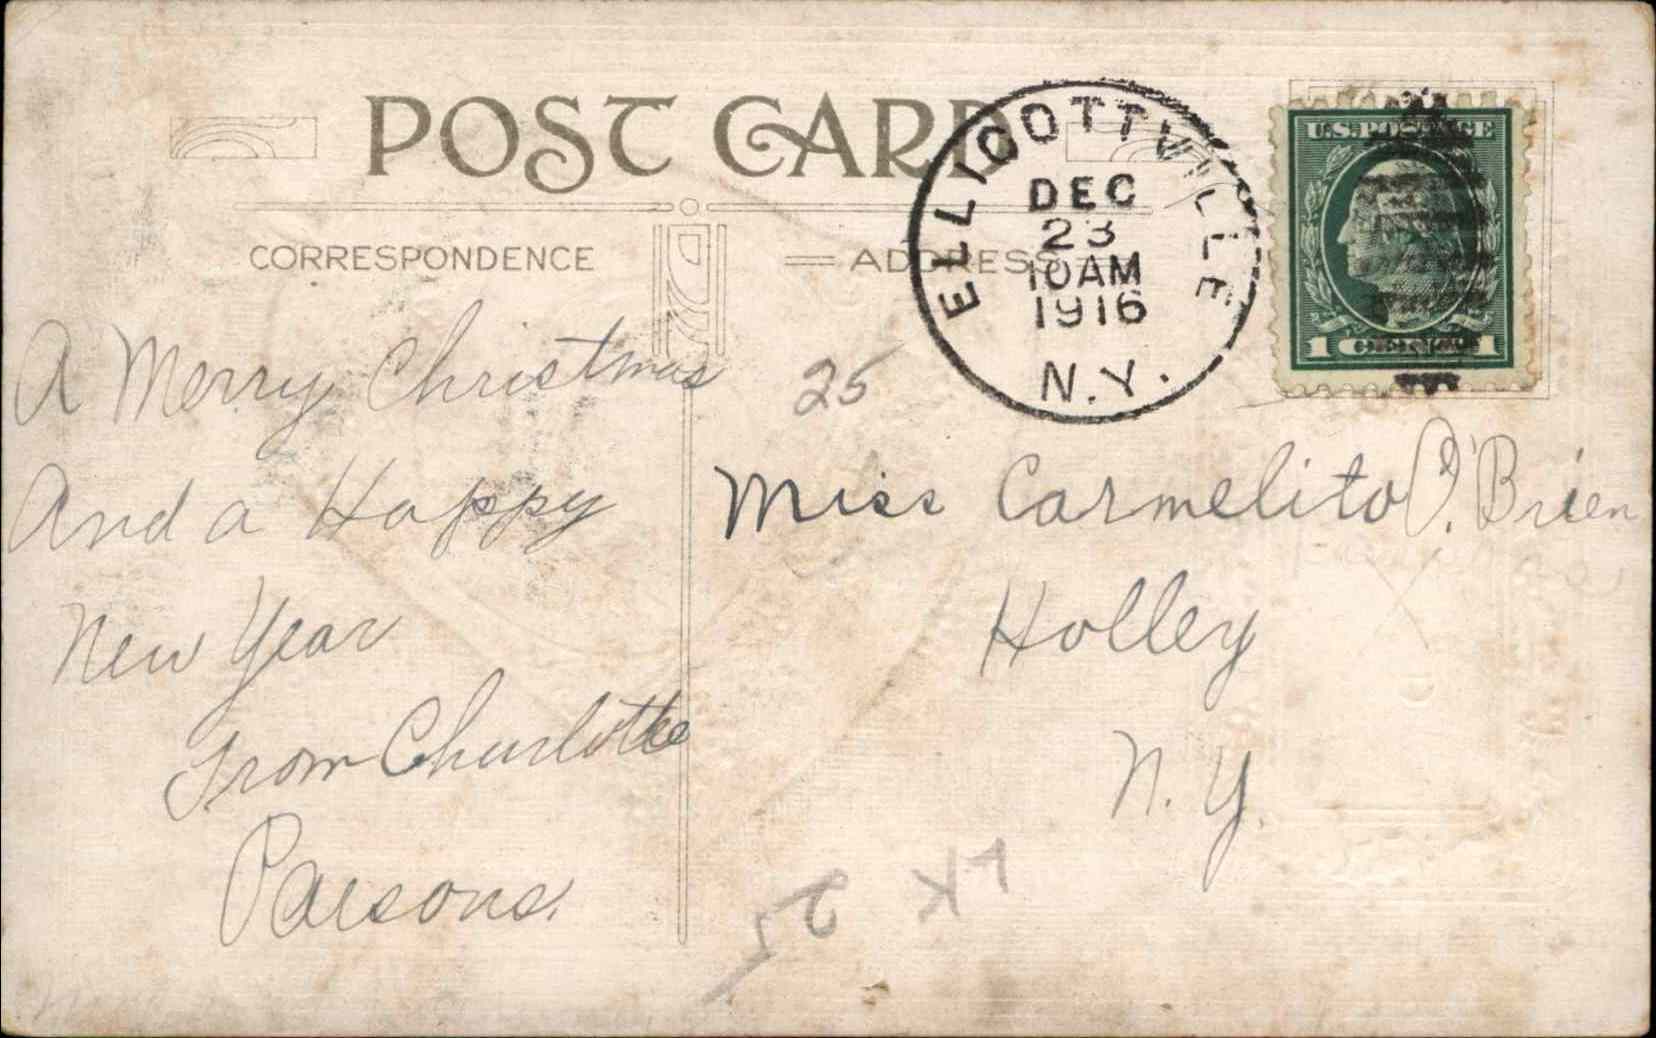 POST CARD
CORRESPONDENCE
ADDRESS
ELLICOTTVILLE
DEC
23
10AM
1916
N.Y.
U.S. POSTAGE
1 CENT 1
A Merry Christmas
And a Happy
New Year
From Charlotte
Parsons.
25
Miss Carmelito O'Brien
Holley
N. Y.
25